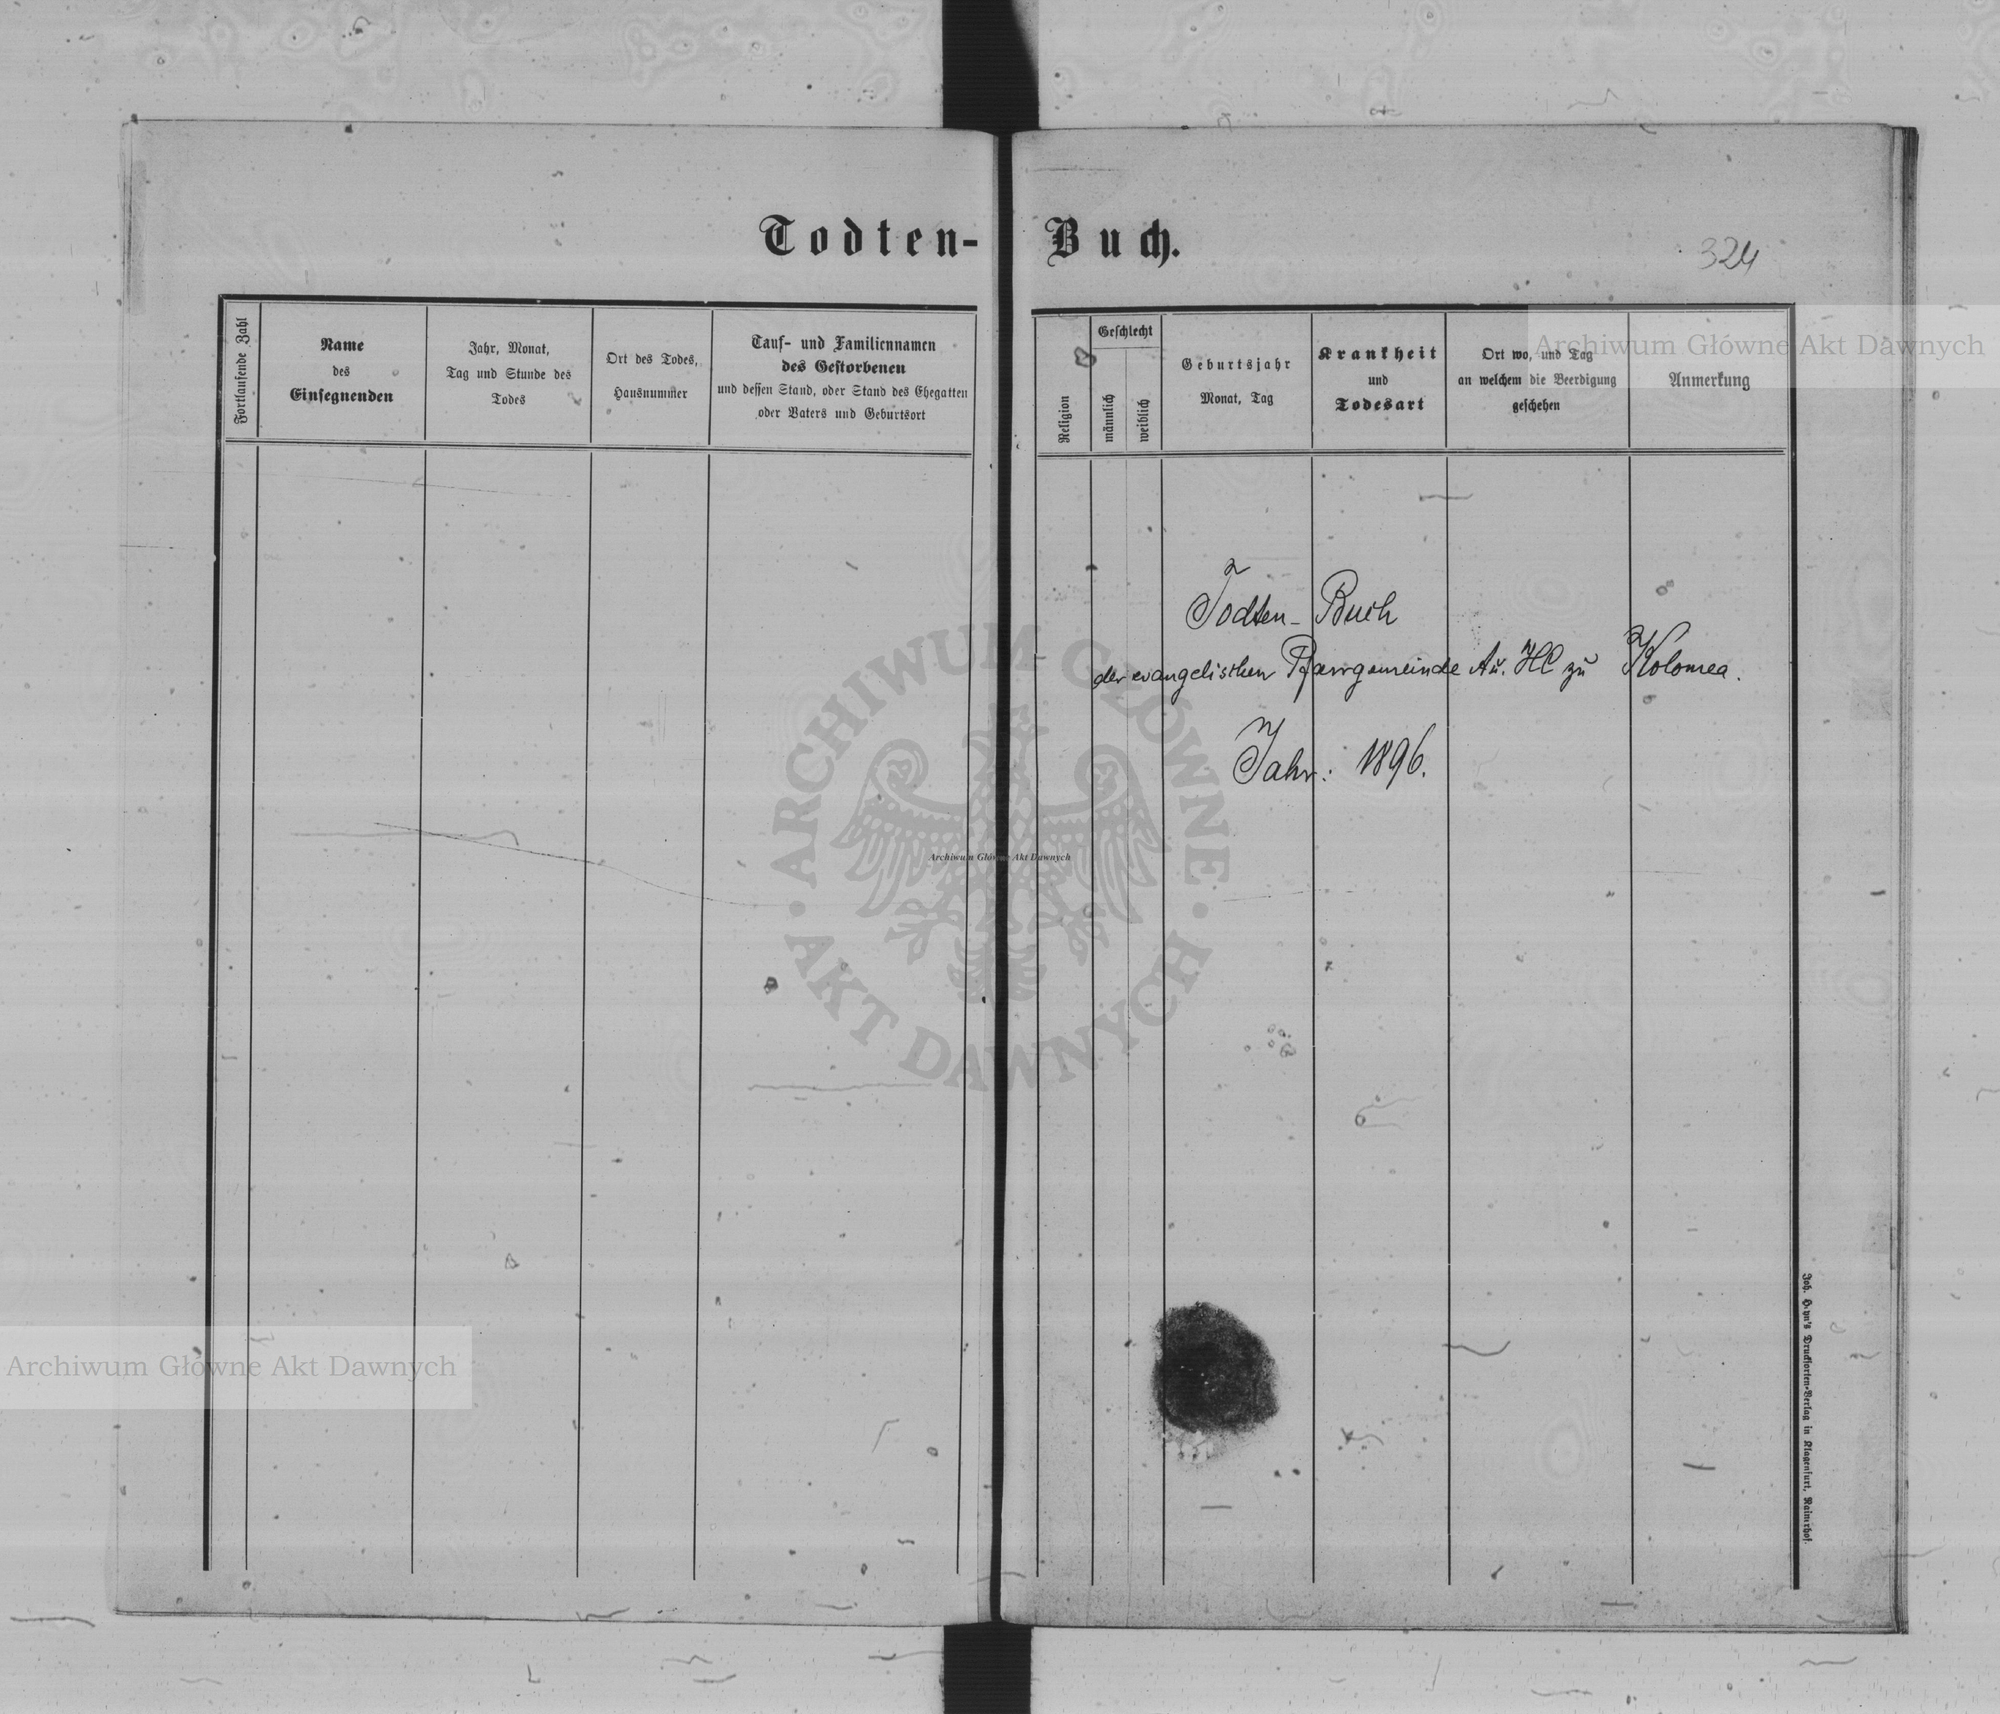 Todten- Buch.
324
Fortlaufende Zahl
Name
des
Einsegnenden
Jahr, Monat,
Tag und Stunde des
Todes
Ort des Todes,
Hausnummer
Tauf- und Familiennamen
des Gestorbenen
und dessen Stand, oder Stand des Ehegatten
oder Vaters und Geburtsort
Religion
Geschlecht
männlich
weiblich
Geburtsjahr
Monat, Tag
Krankheit
und
Todesart
Ort wo, und Tag
an welchem die Beerdigung
geschehen
Anmerkung
Archiwum Główne Akt Dawnych
Todten- Buch
der evangelischen Pfarrgemeinde Au. HC zu Kolomea.
Jahr: 1896.
ARCHIWUM GŁÓWNE
AKT DAWNYCH
Archiwum Główne Akt Dawnych
Archiwum Główne Akt Dawnych
Joh. Druckforten-Verlag in Klagenfurt,